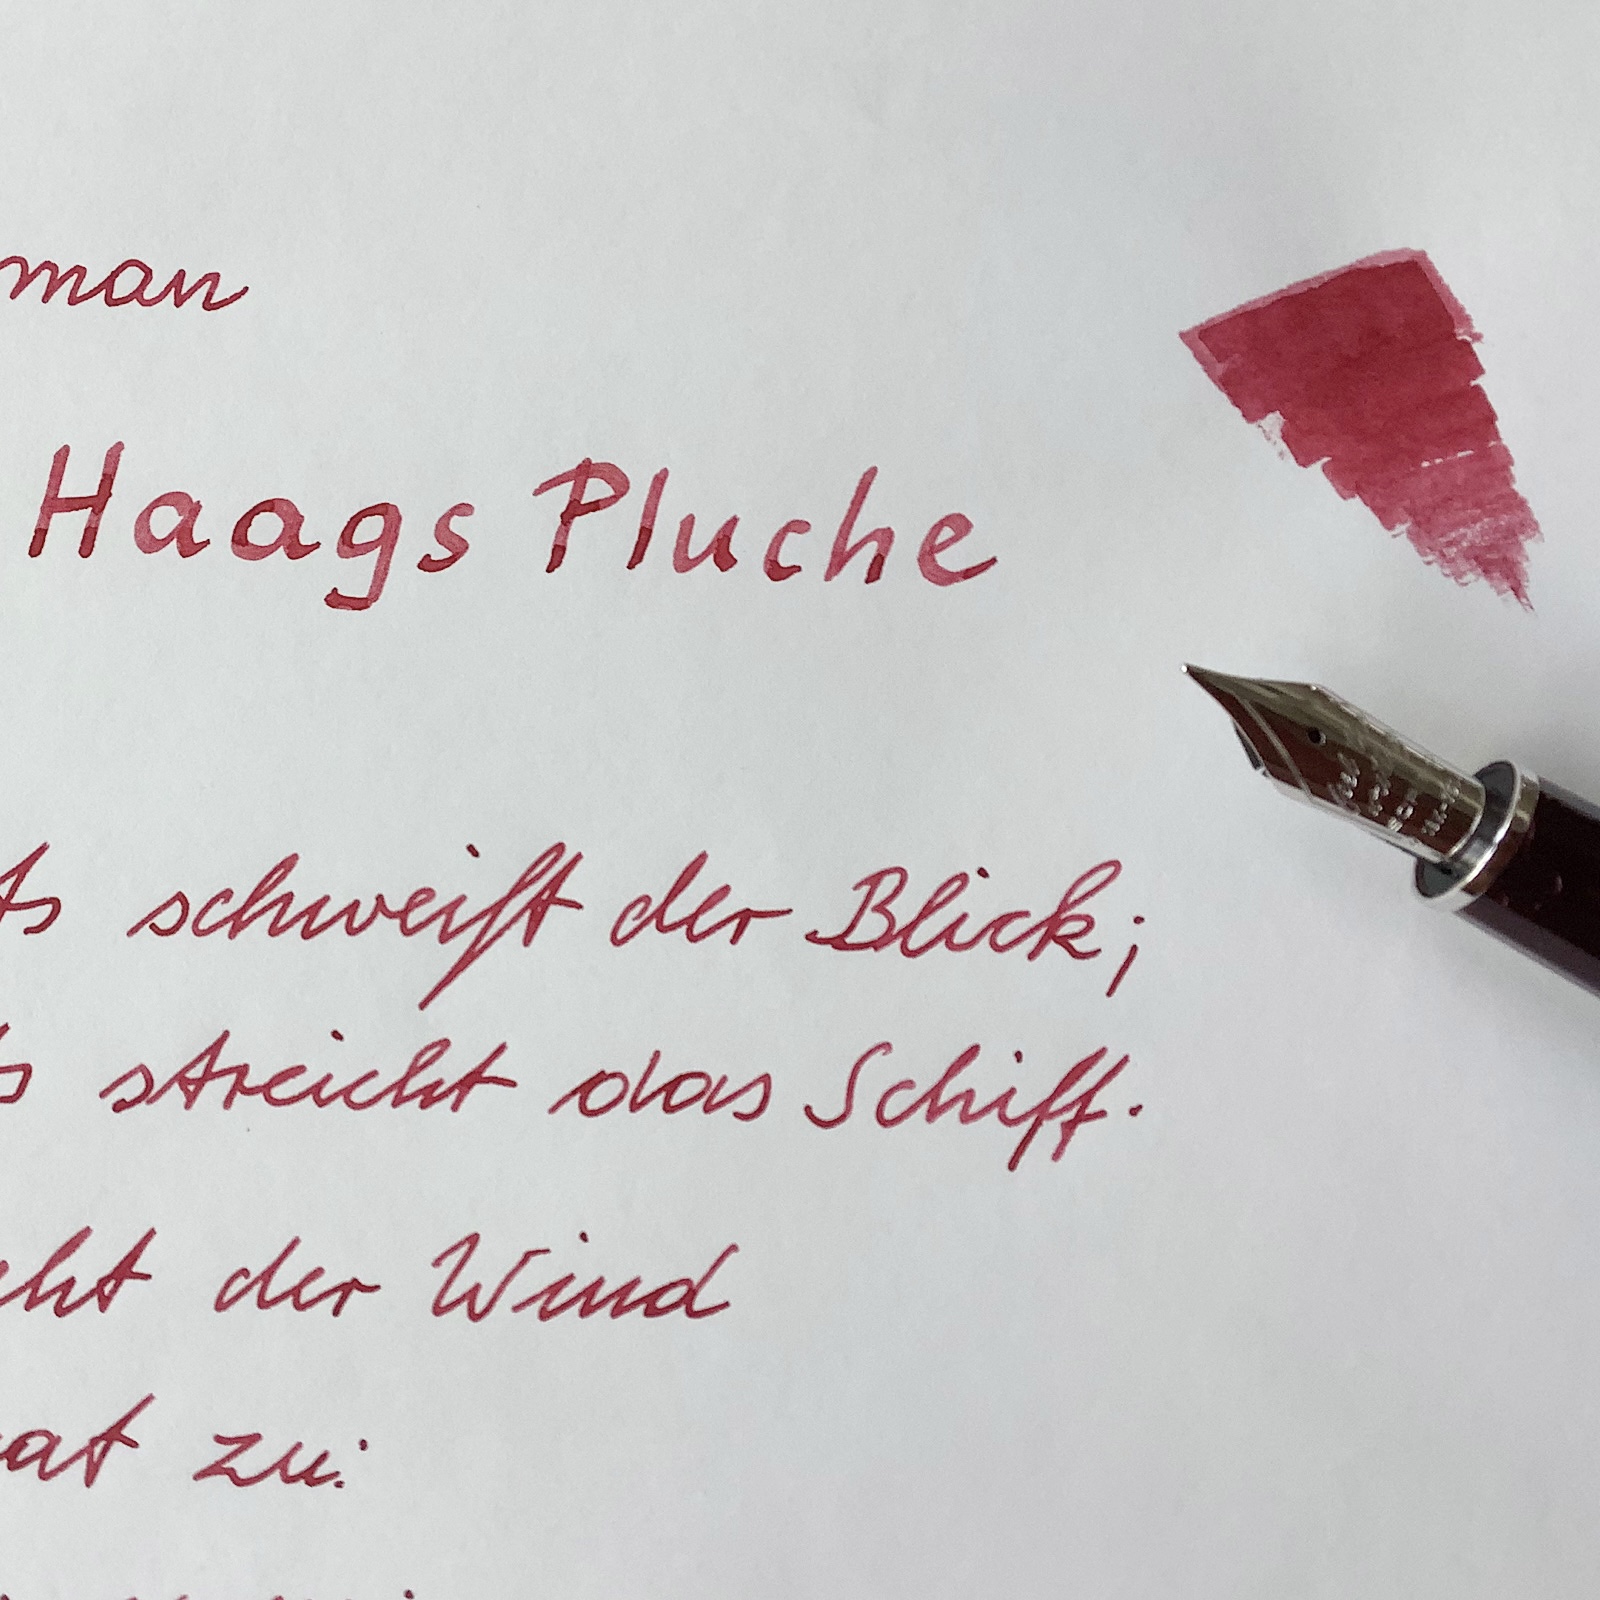 man
Haags Pluche
ts schweift der Blick;
ts streicht das Schiff.
eht der Wind
at zu: